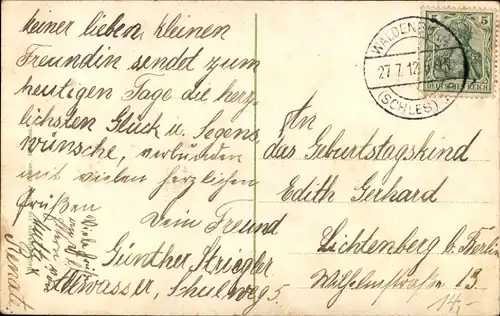 Meiner lieben, kleinen
Freundin sendet zum
heutigen Tage die herz-
lichsten Glück u. Segens-
wünsche, verbunden
mit vielen herzlichen
Grüßen
Dein Freund
Günther Striegler
wasser, Schulweg 5.
Viele
WALDENBURG
27.7.12
(SCHLES)
5 5
DEUTSCHES REICH
An
das Geburtstagskind
Edith Gerhard
Lichtenberg b. Berlin
Wilhelmstraße 13.
14,-